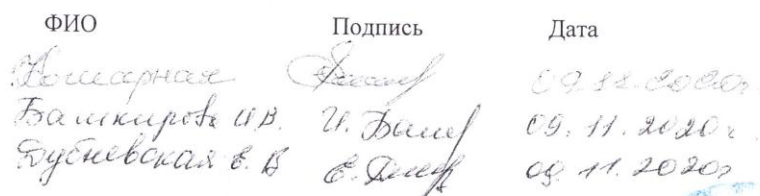 ФИО Подпись Дата
Кошарная 09.11.2020г.
Башкирова И.В. И. Баш 09.11.2020г.
Дубневская Е.В. 09.11.2020г